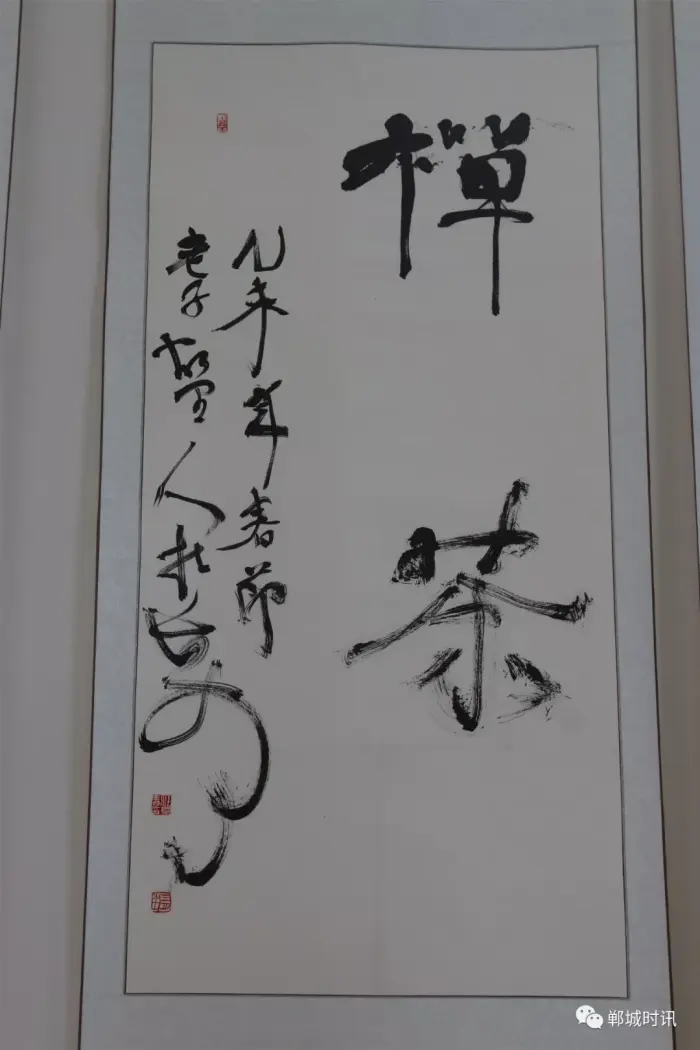 禪茶
乙未年春節
老子故里人
郸城时讯